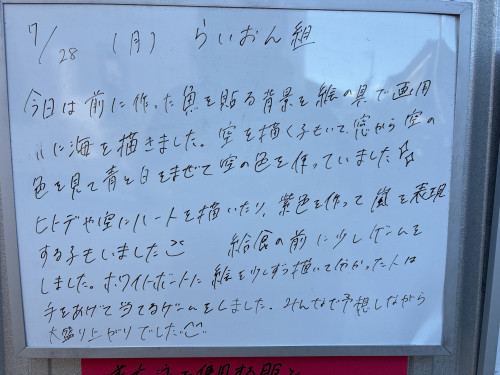 7/28 (月) らいおん組
今日は前に作った魚を貼る背景を絵の具で画用
〃に海を描きました。空を描く子もいて、窓から空の
色を見て青と白をまぜて空の色を作っていました☆
ヒトデや空にハートを描いたり、紫色を作って嵐を表現
する子もいました 給食の前に少しゲームを
しました。ホワイトボードに絵を少しずつ描いて分かった人は
手をあげて当てるゲームをしました。みんなで予想しながら
大盛り上がりでした